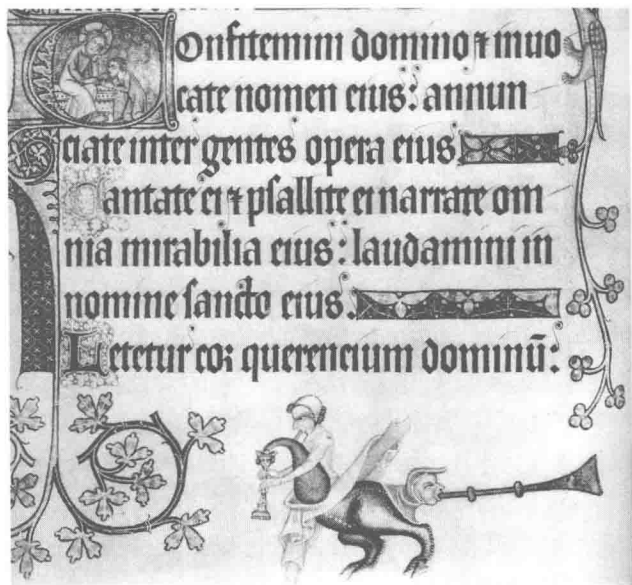 Confitemini domino ⁊ inuo
cate nomen eius: annun
ciate inter gentes opera eius
Cantate ei ⁊ psallite ei narrate om
nia mirabilia eius: laudamini in
nomine sancto eius.
Letetur coꝛ querencium dominū: